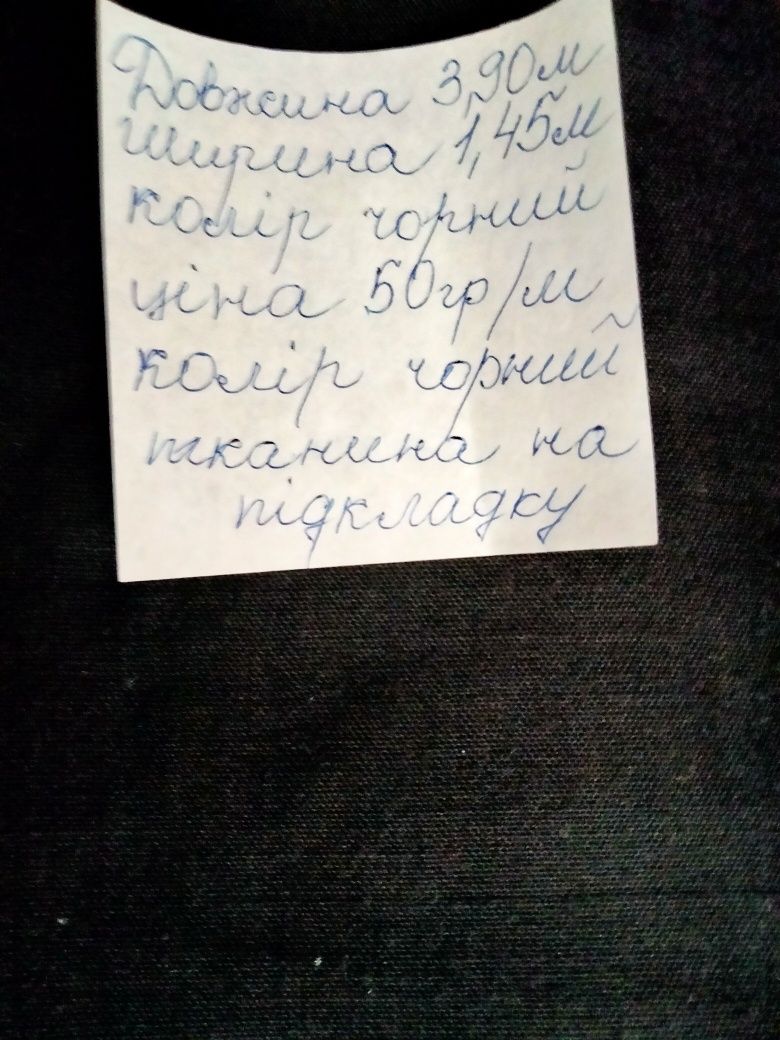 Довжина 3,90м
ширина 1,45м
колір чорний
ціна 50гр/м
колір чорний
тканина на
підкладку